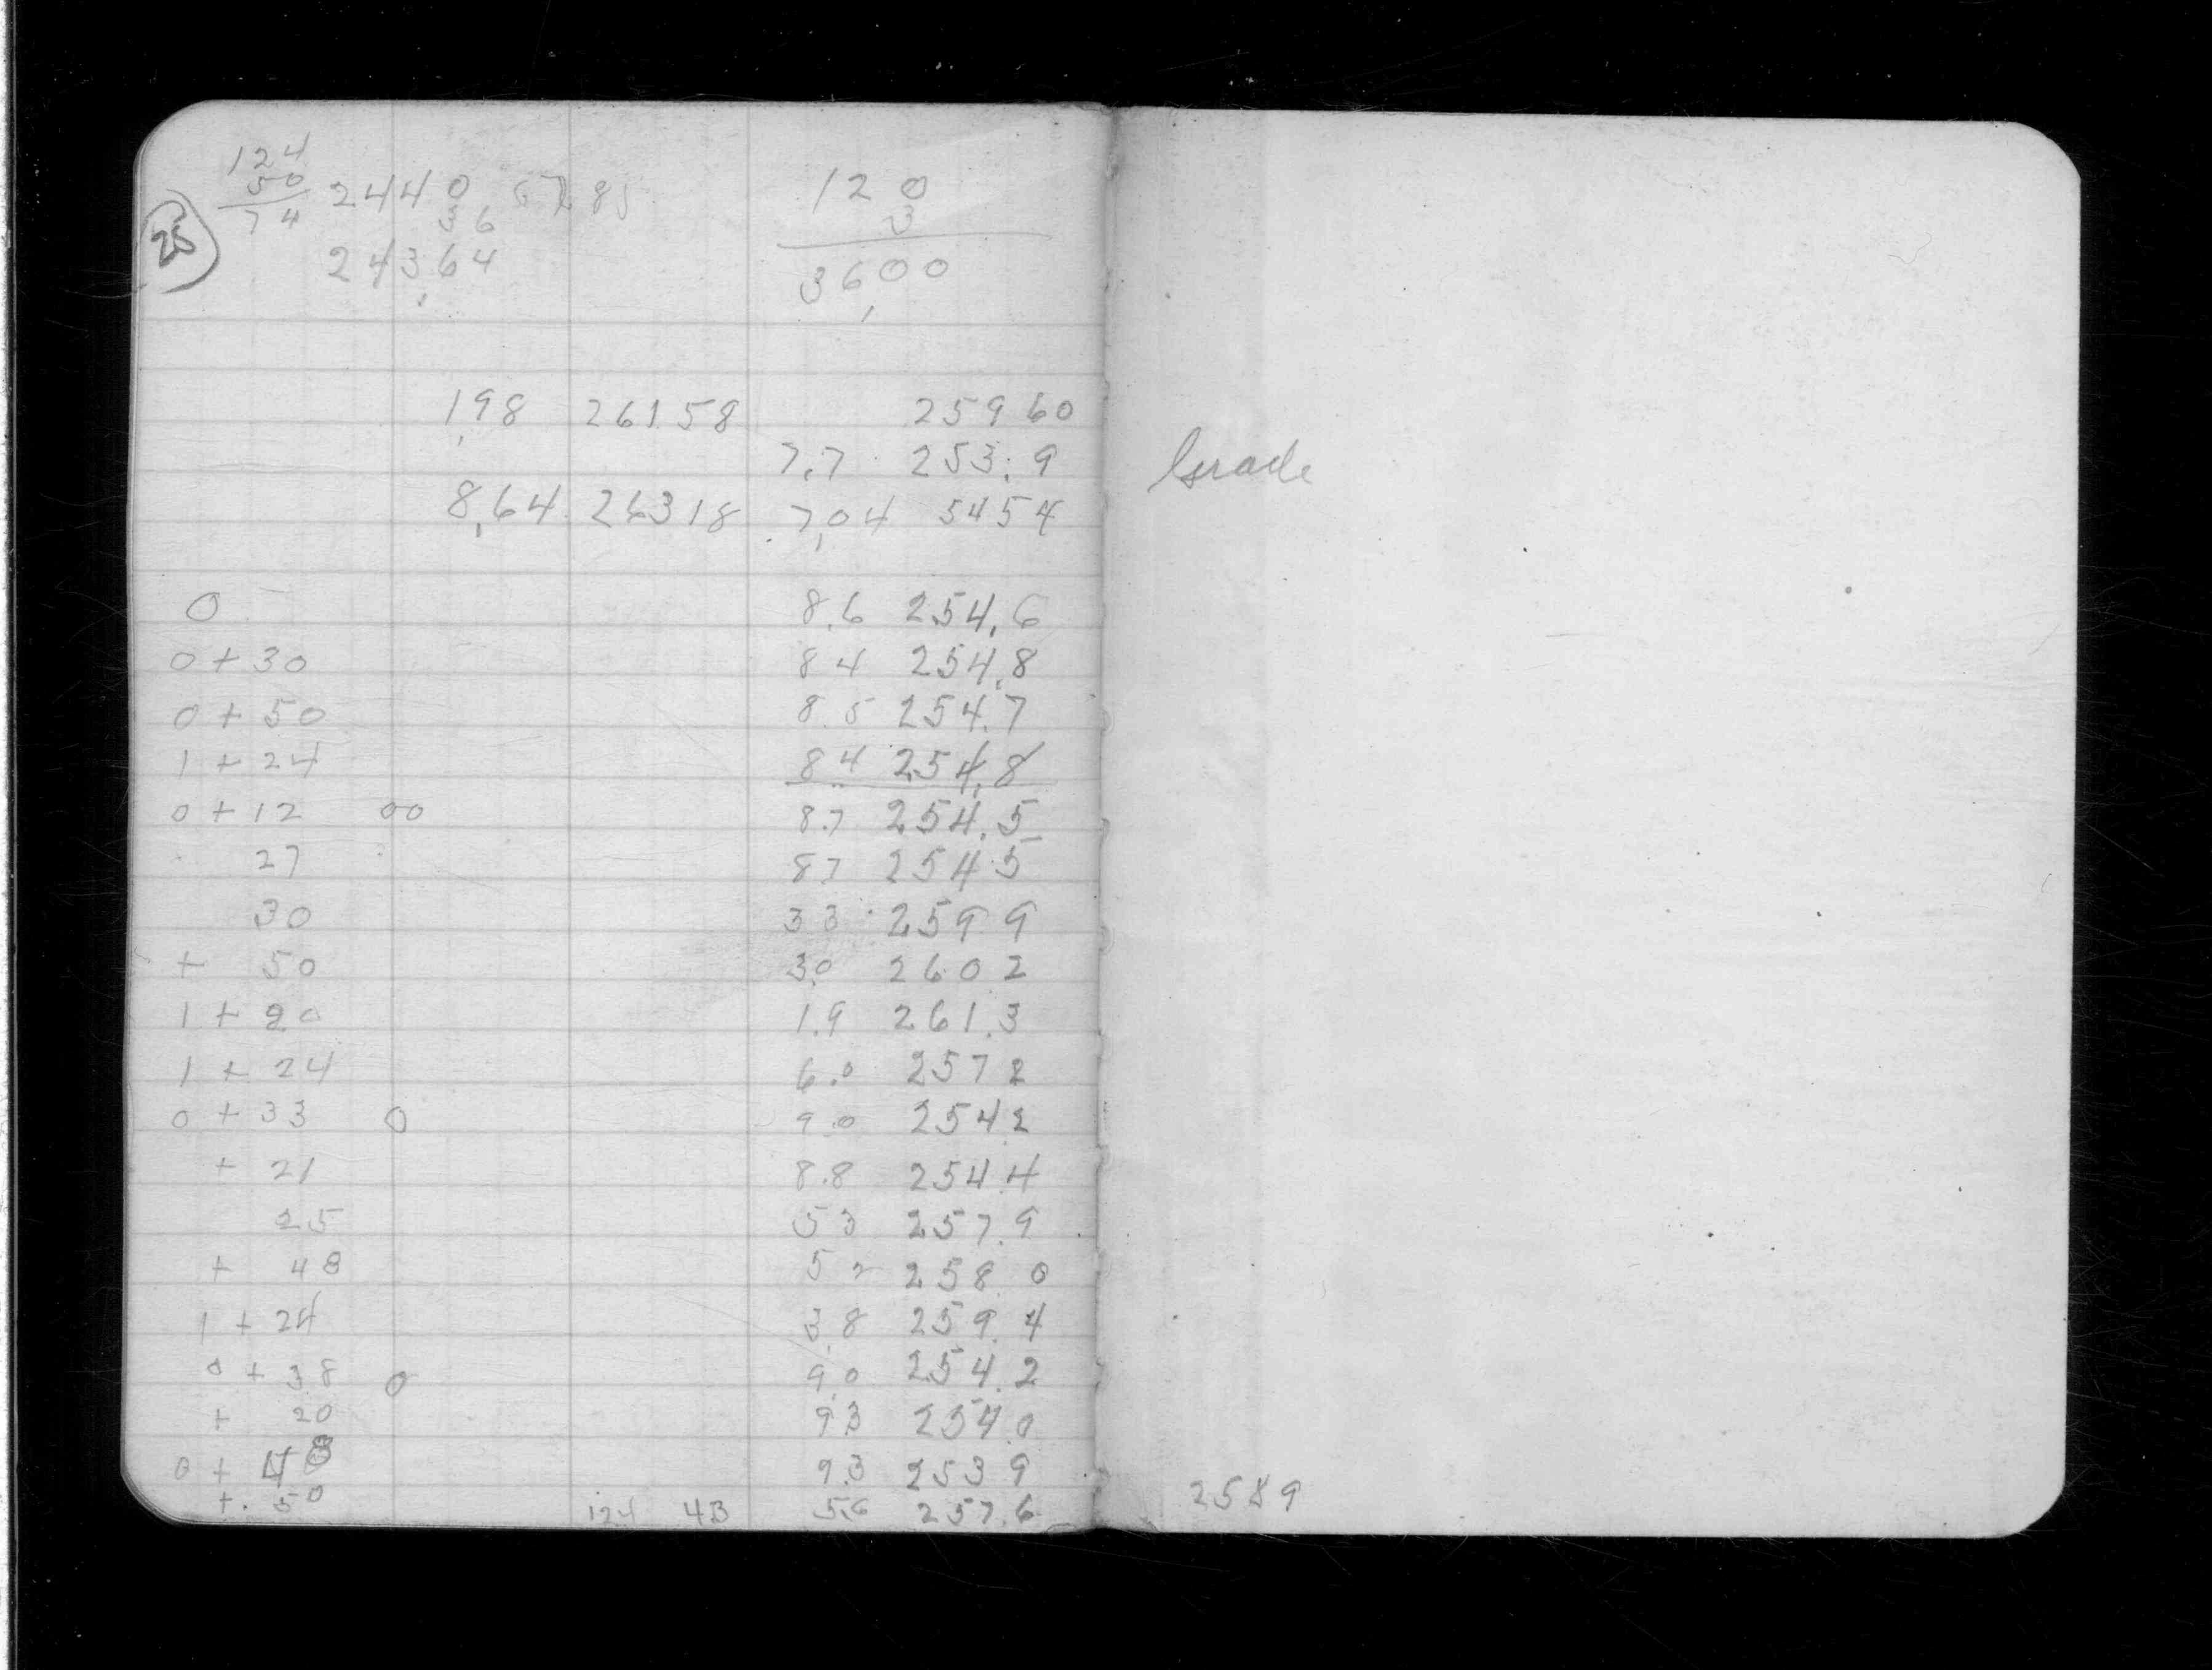 124
50 2440 120
25 74 36 3
24364 3600
1,98 261.58 25960
7.7 253.9
8,64 26318 7,04 5454
0 8.6 254.6
0 + 30 8 4 254.8
0 + 50 8.5 254.7
1 + 24 8 4 254.8
0 + 12 00 8.7 254.5
27 8 7 254 5
30 3 3 259 9
+ 50 3.0 260 2
1 + 20 1.9 261.3
1 + 24 6.0 257 2
0 + 33 0 9.0 254 2
+ 21 8.8 254 4
25 5 3 257.9
+ 48 5 2 258 0
1 + 24 3.8 259.4
0 + 38 0 9.0 254.2
+ 20 9.3 254.0
0 + 48 9.3 253 9
+ 50 124 43 5.6 257.6
Grade
2589